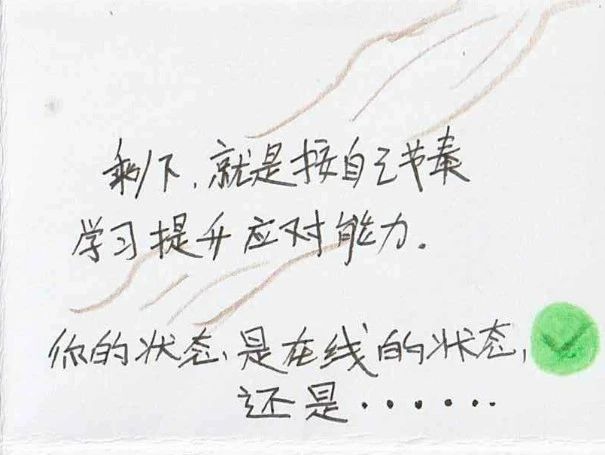 剩下,就是按自己节奏
学习提升应对能力。
你的状态,是在线的状态,
还是······